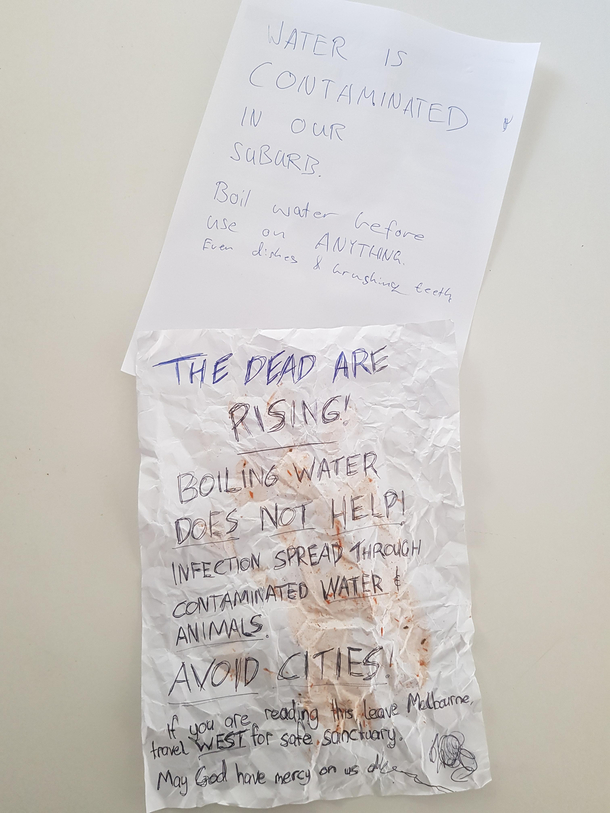 WATER IS
CONTAMINATED
IN OUR
SUBURB.
Boil water before
use on ANYTHING.
Even dishes & brushing teeth
THE DEAD ARE
RISING!
BOILING WATER
DOES NOT HELP!
INFECTION SPREAD THROUGH
CONTAMINATED WATER &
ANIMALS.
AVOID CITIES!
If you are reading this, leave Melbourne,
travel WEST for safe sanctuary.
May God have mercy on us all